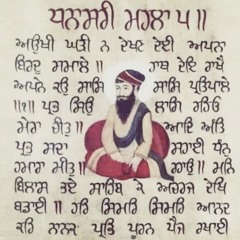 ਧਨਾਸਰੀ ਮਹਲਾ ੫ ॥
ਅਉਖੀ ਘੜੀ ਨ ਦੇਖਣ ਦੇਈ ਅਪਨਾ
ਬਿਰਦੁ ਸਮਾਲੇ ॥ ਹਾਥ ਦੇਇ ਰਾਖੈ
ਅਪਨੇ ਕਉ ਸਾਸਿ ਸਾਸਿ ਪ੍ਰਤਿਪਾਲੇ
॥੧॥ ਪ੍ਰਭ ਸਿਉ ਲਾਗਿ ਰਹਿਓ
ਮੇਰਾ ਚੀਤੁ ॥ ਆਦਿ ਅੰਤਿ
ਪ੍ਰਭੁ ਸਦਾ ਸਹਾਈ ਧੰਨੁ
ਹਮਾਰਾ ਮੀਤੁ ॥ ਰਹਾਉ ॥ ਮਨਿ
ਬਿਲਾਸ ਭਏ ਸਾਹਿਬ ਕੇ ਅਚਰਜ ਦੇਖਿ
ਬਡਾਈ ॥ ਹਰਿ ਸਿਮਰਿ ਸਿਮਰਿ ਆਨਦ
ਕਰਿ ਨਾਨਕ ਪ੍ਰਭਿ ਪੂਰਨ ਪੈਜ ਰਖਾਈ